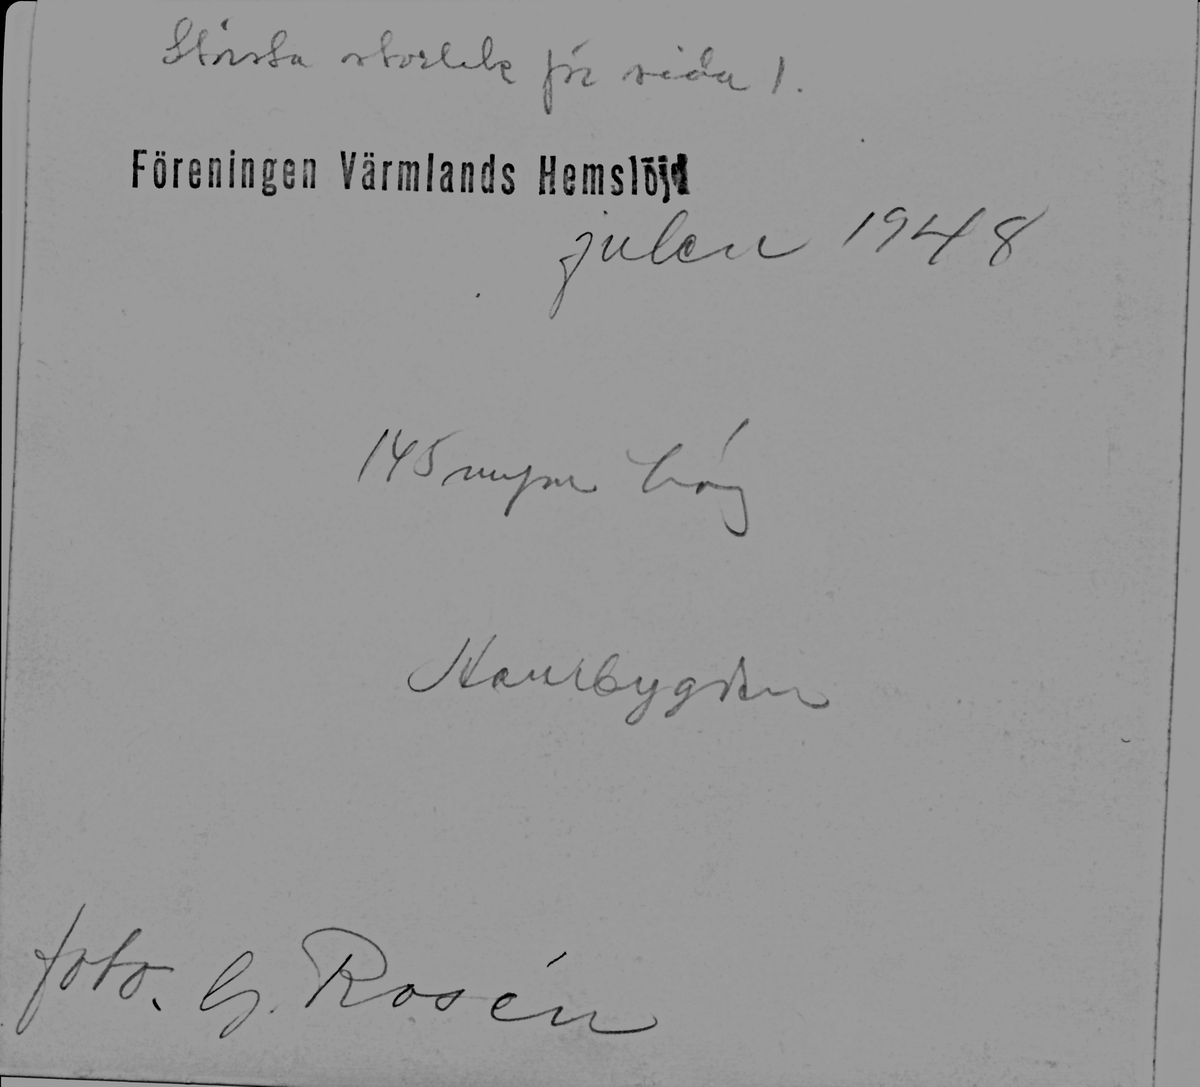 Största storlek för sida 1.
Föreningen Värmlands Hemslöjd
julen 1948
145 hög
foto. G. Rosén